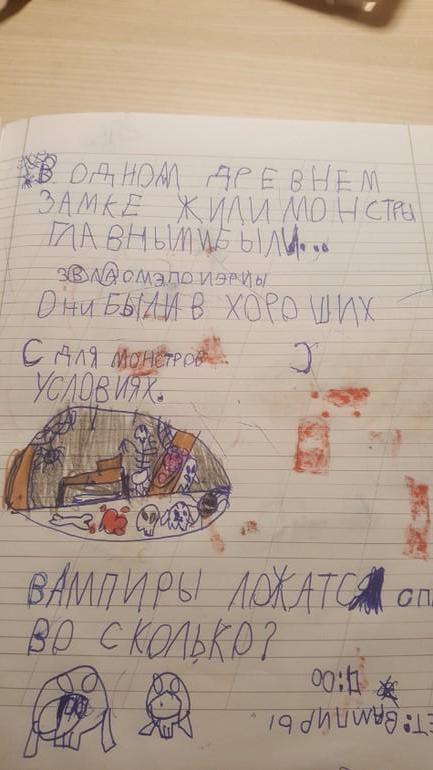 В ОДНОМ ДРЕВНЕМ
ЗАМКЕ ЖИЛИ МОНСТРЫ
ГЛАВНЫМИ БЫЛИ...
ОНИ БЫЛИ В ХОРОШИХ
(ДЛЯ МОНСТРОВ)
УСЛОВИЯХ.
ВАМПИРЫ ЛОЖАТСЯ СП
ВО СКОЛЬКО?
ЕТ: ВАМПИРЫ
Д:00